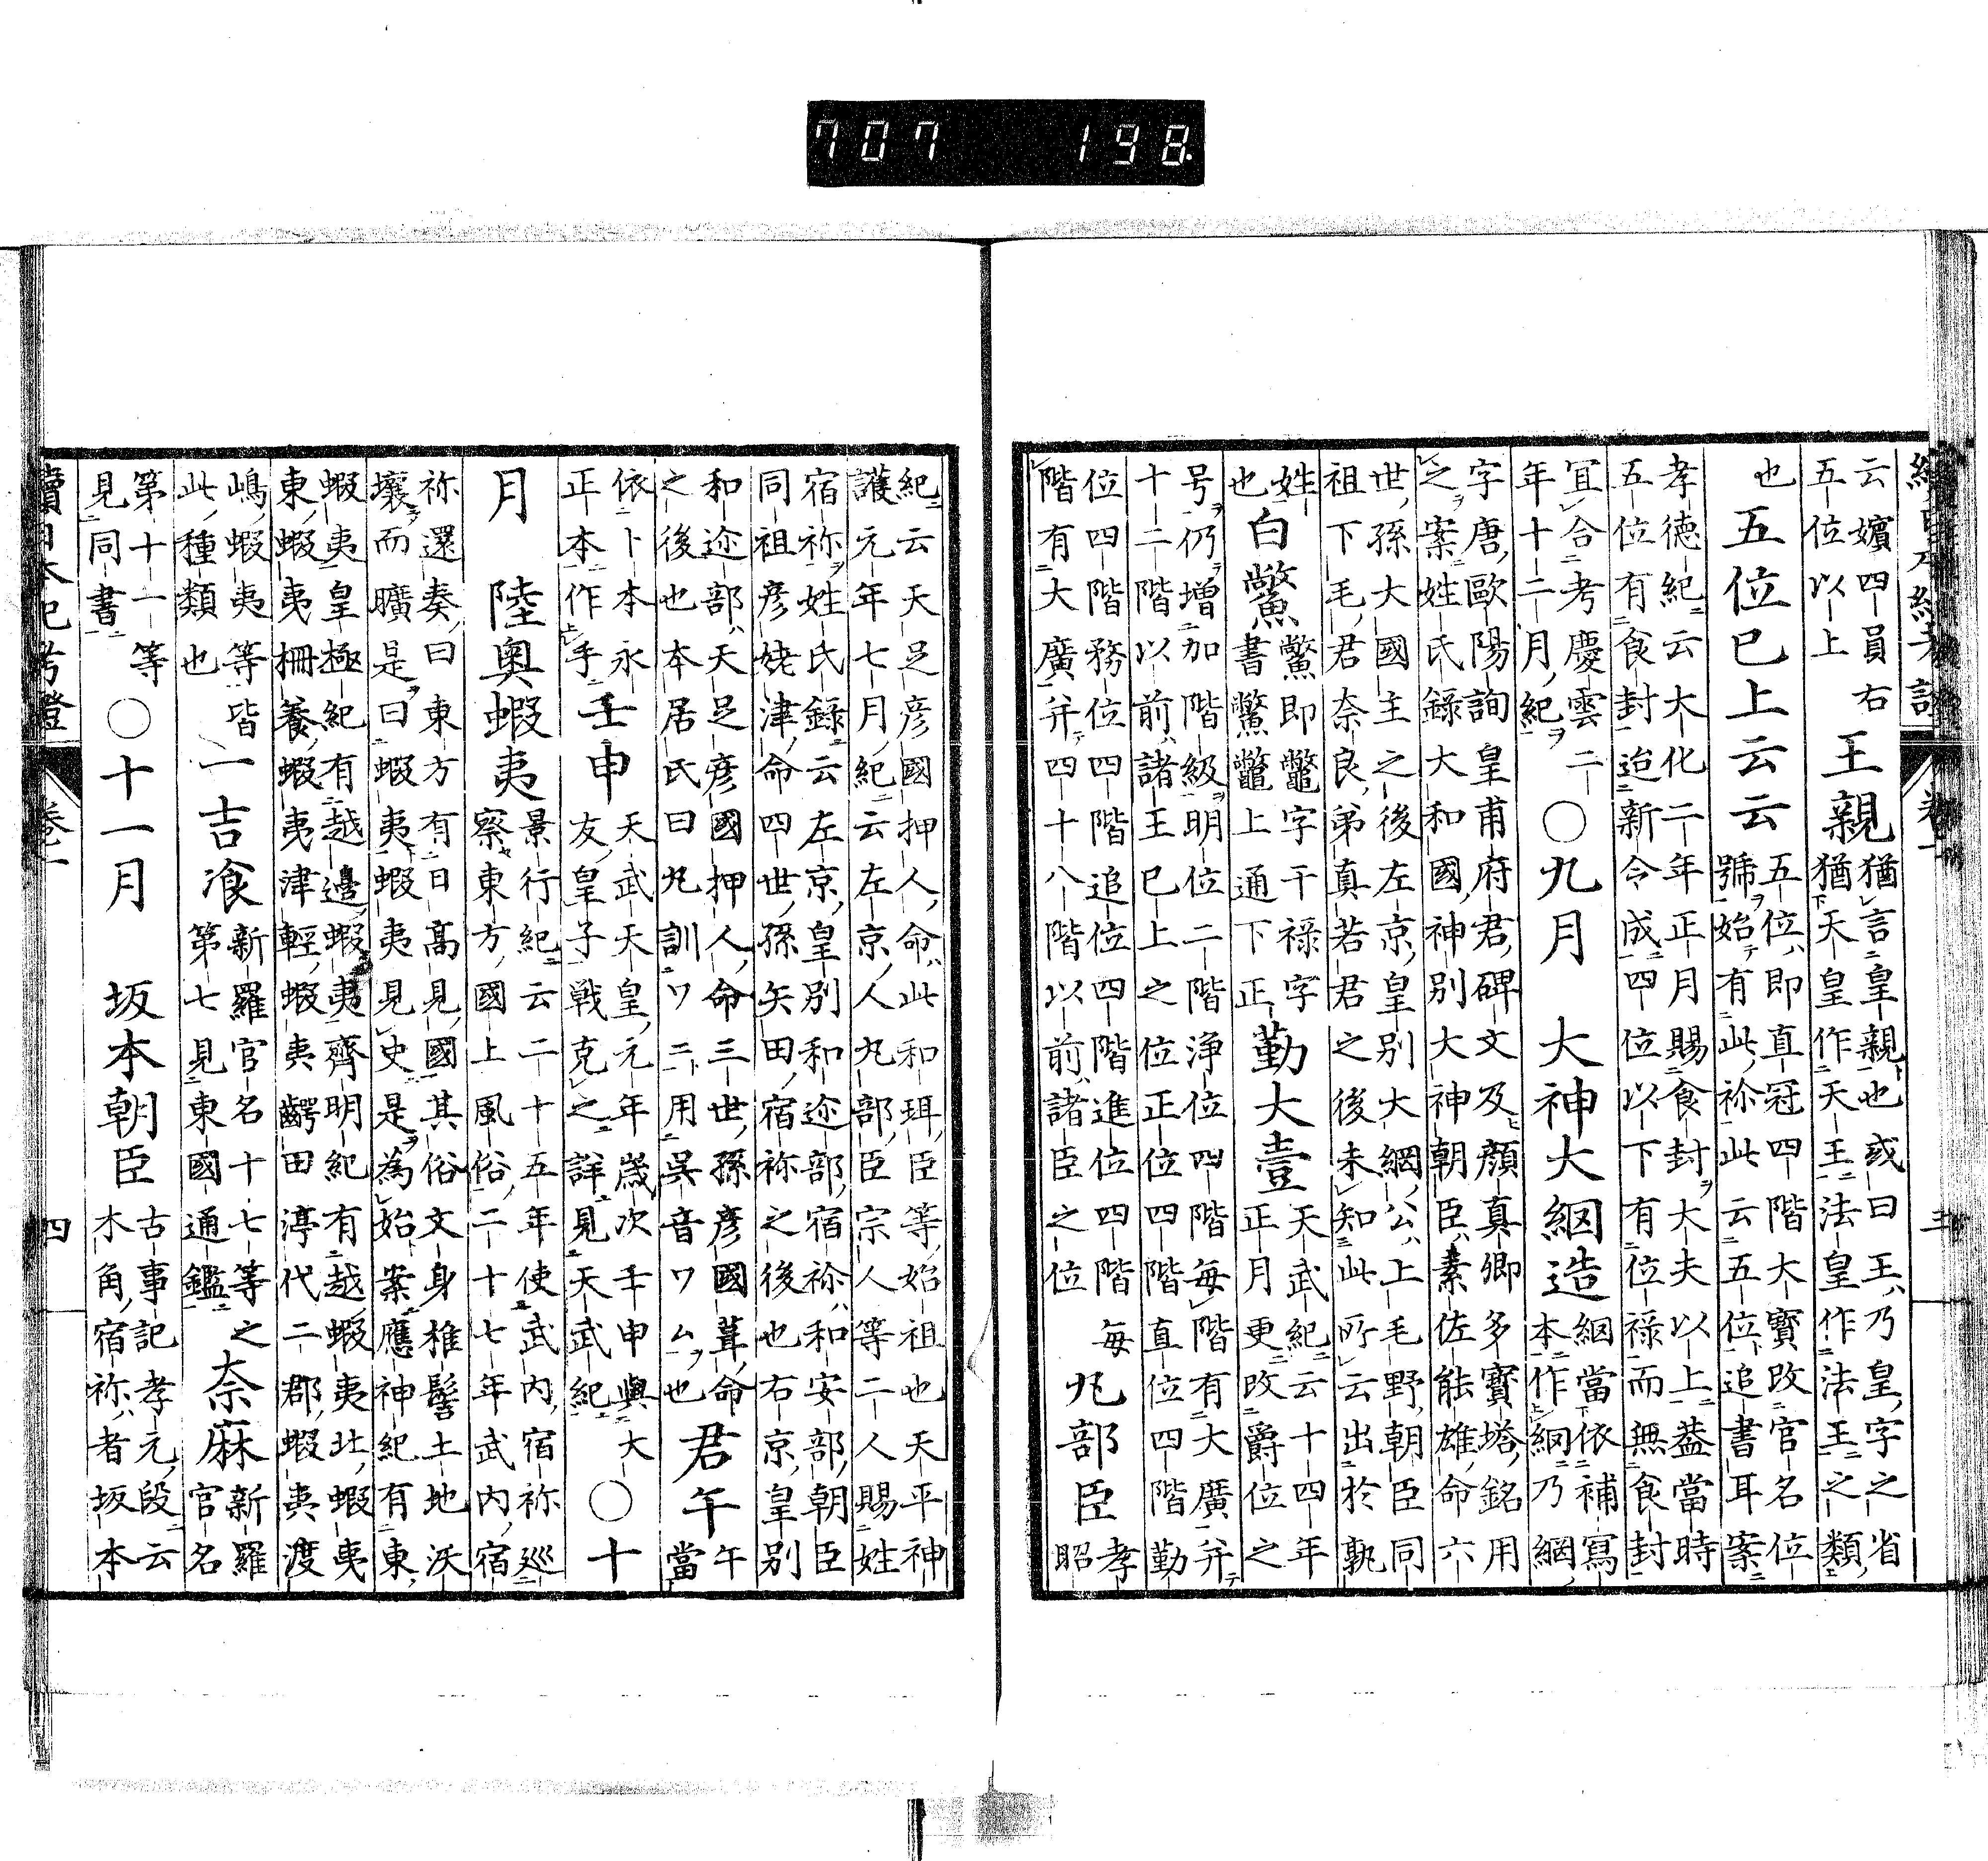 707 198.
續日本紀考證 卷一 三
云嬪四員右
五位以上
王親
猶言皇親也或曰王乃皇字之省
猶天皇作天王法皇作法王之類
也
五位已上云云
五位即直冠四階大寶改官名位
號始有此祢此云五位追書耳案
孝德紀云大化二年正月賜食封大夫以上蓋當時
五位有食封迨新令成四位以下有位祿而無食封
宜合考慶雲二
年十二月紀
○九月
大神大綱造
綱當依補寫
本作網乃網
字唐歐陽詢皇甫府君碑文及顏真卿多寶塔銘用
之案姓氏錄大和國神別大神朝臣素佐能雄命六
世孫大國主之後左京皇別大網公上毛野朝臣同
祖下毛君奈良弟真若君之後未知此所云出於孰
姓
也
白鱉
鱉即鼈字干祿字
書鱉鼈上通下正
勤大壹
天武紀云十四年
正月更改爵位之
号仍增加階級明位二階淨位四階每階有大廣并
十二階以前諸王已上之位正位四階直位四階勤
位四階務位四階追位四階進位四階每
階有大廣并四十八階以前諸臣之位
丸部臣
孝
昭
紀云天足彦國押人命此和珥臣等始祖也天平神
護元年七月紀云左京人丸部臣宗人等二人賜姓
宿祢姓氏錄云左京皇別和迩部宿祢和安部朝臣
同祖彦姥津命四世孫矢田宿祢之後也右京皇別
和迩部天足彦國押人命三世孫彦國葺命
之後也本居氏曰丸訓ワニ用吳音ワム也
君午
午
當
依卜本永
正本作手
壬申
天武天皇元年歲次壬申與大
友皇子戰克之詳見天武紀
○十
月
陸奥蝦夷
景行紀云二十五年使武内宿祢巡
察東方國上風俗二十七年武内宿
祢還奏曰東方有日髙見國其俗文身椎髻土地沃
壤而曠是曰蝦夷蝦夷見史是為始案應神紀有東
蝦夷皇極紀有越邊蝦夷齊明紀有越蝦夷北蝦夷
東蝦夷柵養蝦夷津輕蝦夷齶田渟代二郡蝦夷渡
嶋蝦夷等皆
此種類也
一吉飡
新羅官名十七等之
第七見東國通鑑
奈麻
新羅
官名
第十一等
見同書
○十一月
坂本朝臣
古事記孝元段云
木角宿祢者坂本
續日本紀考證 卷一 四